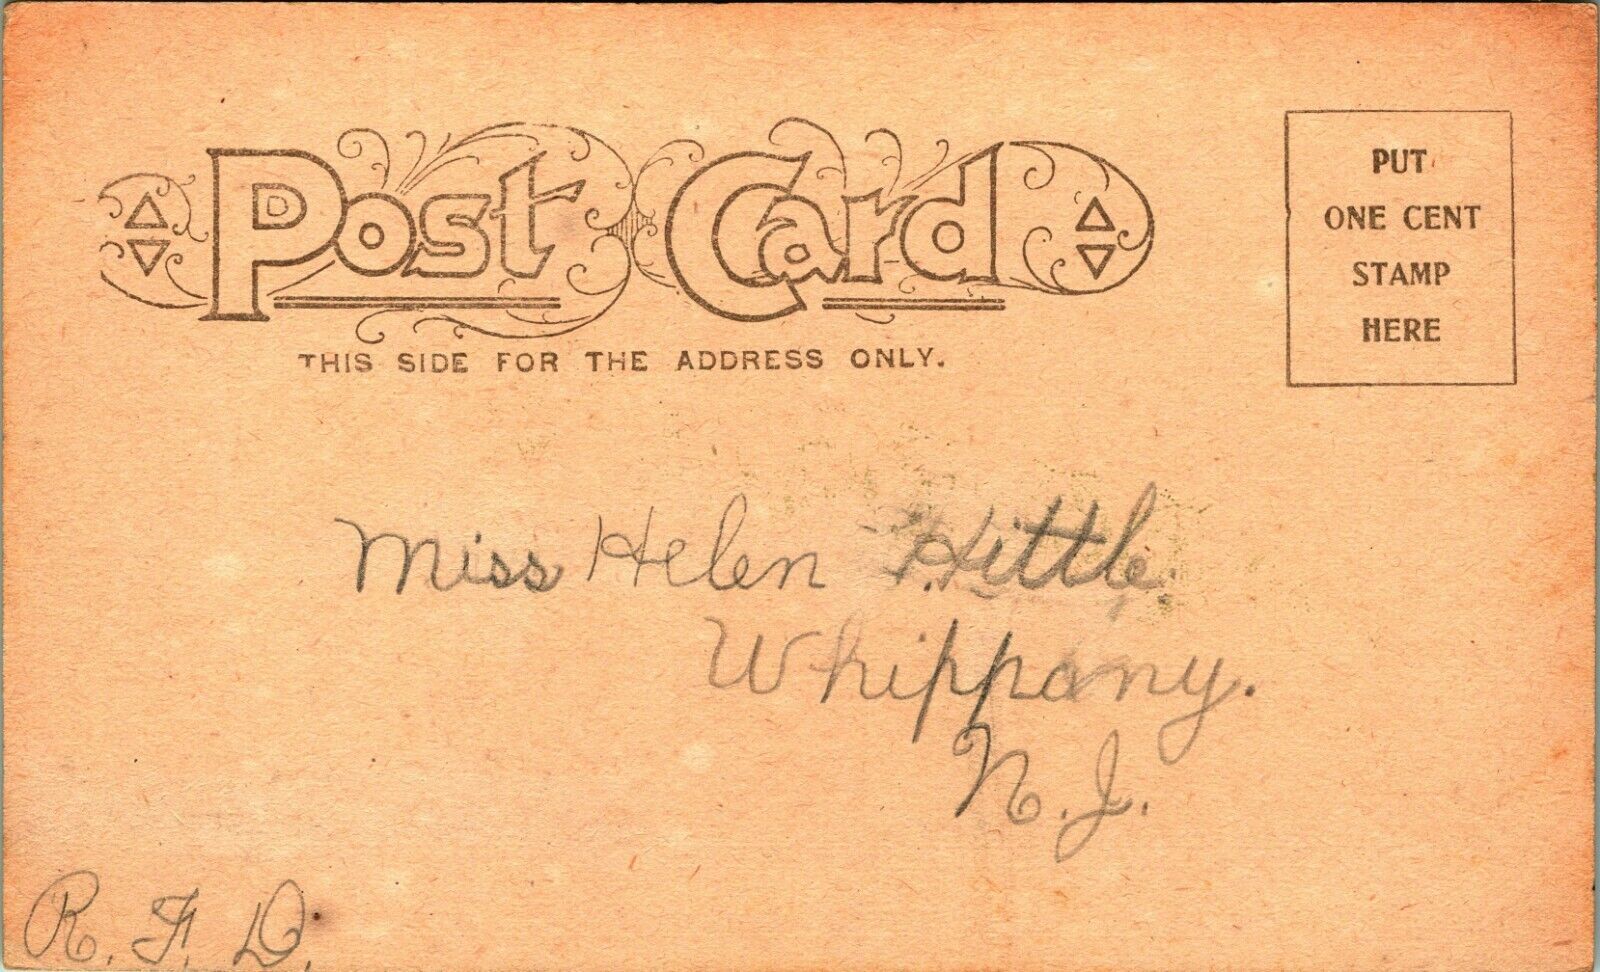 Post Card
THIS SIDE FOR THE ADDRESS ONLY.
PUT
ONE CENT
STAMP
HERE
Miss Helen Hittle.
Whippany.
N.J.
R.F.D.